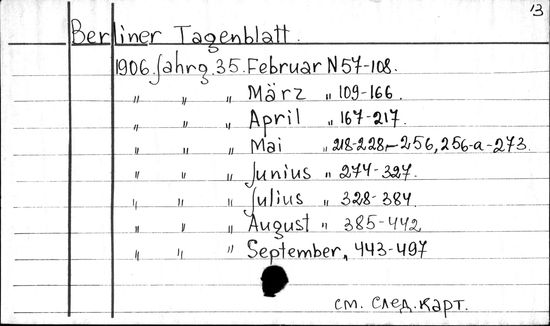 13
Berliner Tagenblatt.
1906. Jahrg. 35. Februar N 57-108.
" " " März " 109-166.
" " " April " 167-217.
" " " Mai " 218-228,-256, 256-a-273.
" " " Junius " 274-327.
" " " Julius " 328-384.
" " " August " 385-442
" " " September, 443-497
см. след. карт.